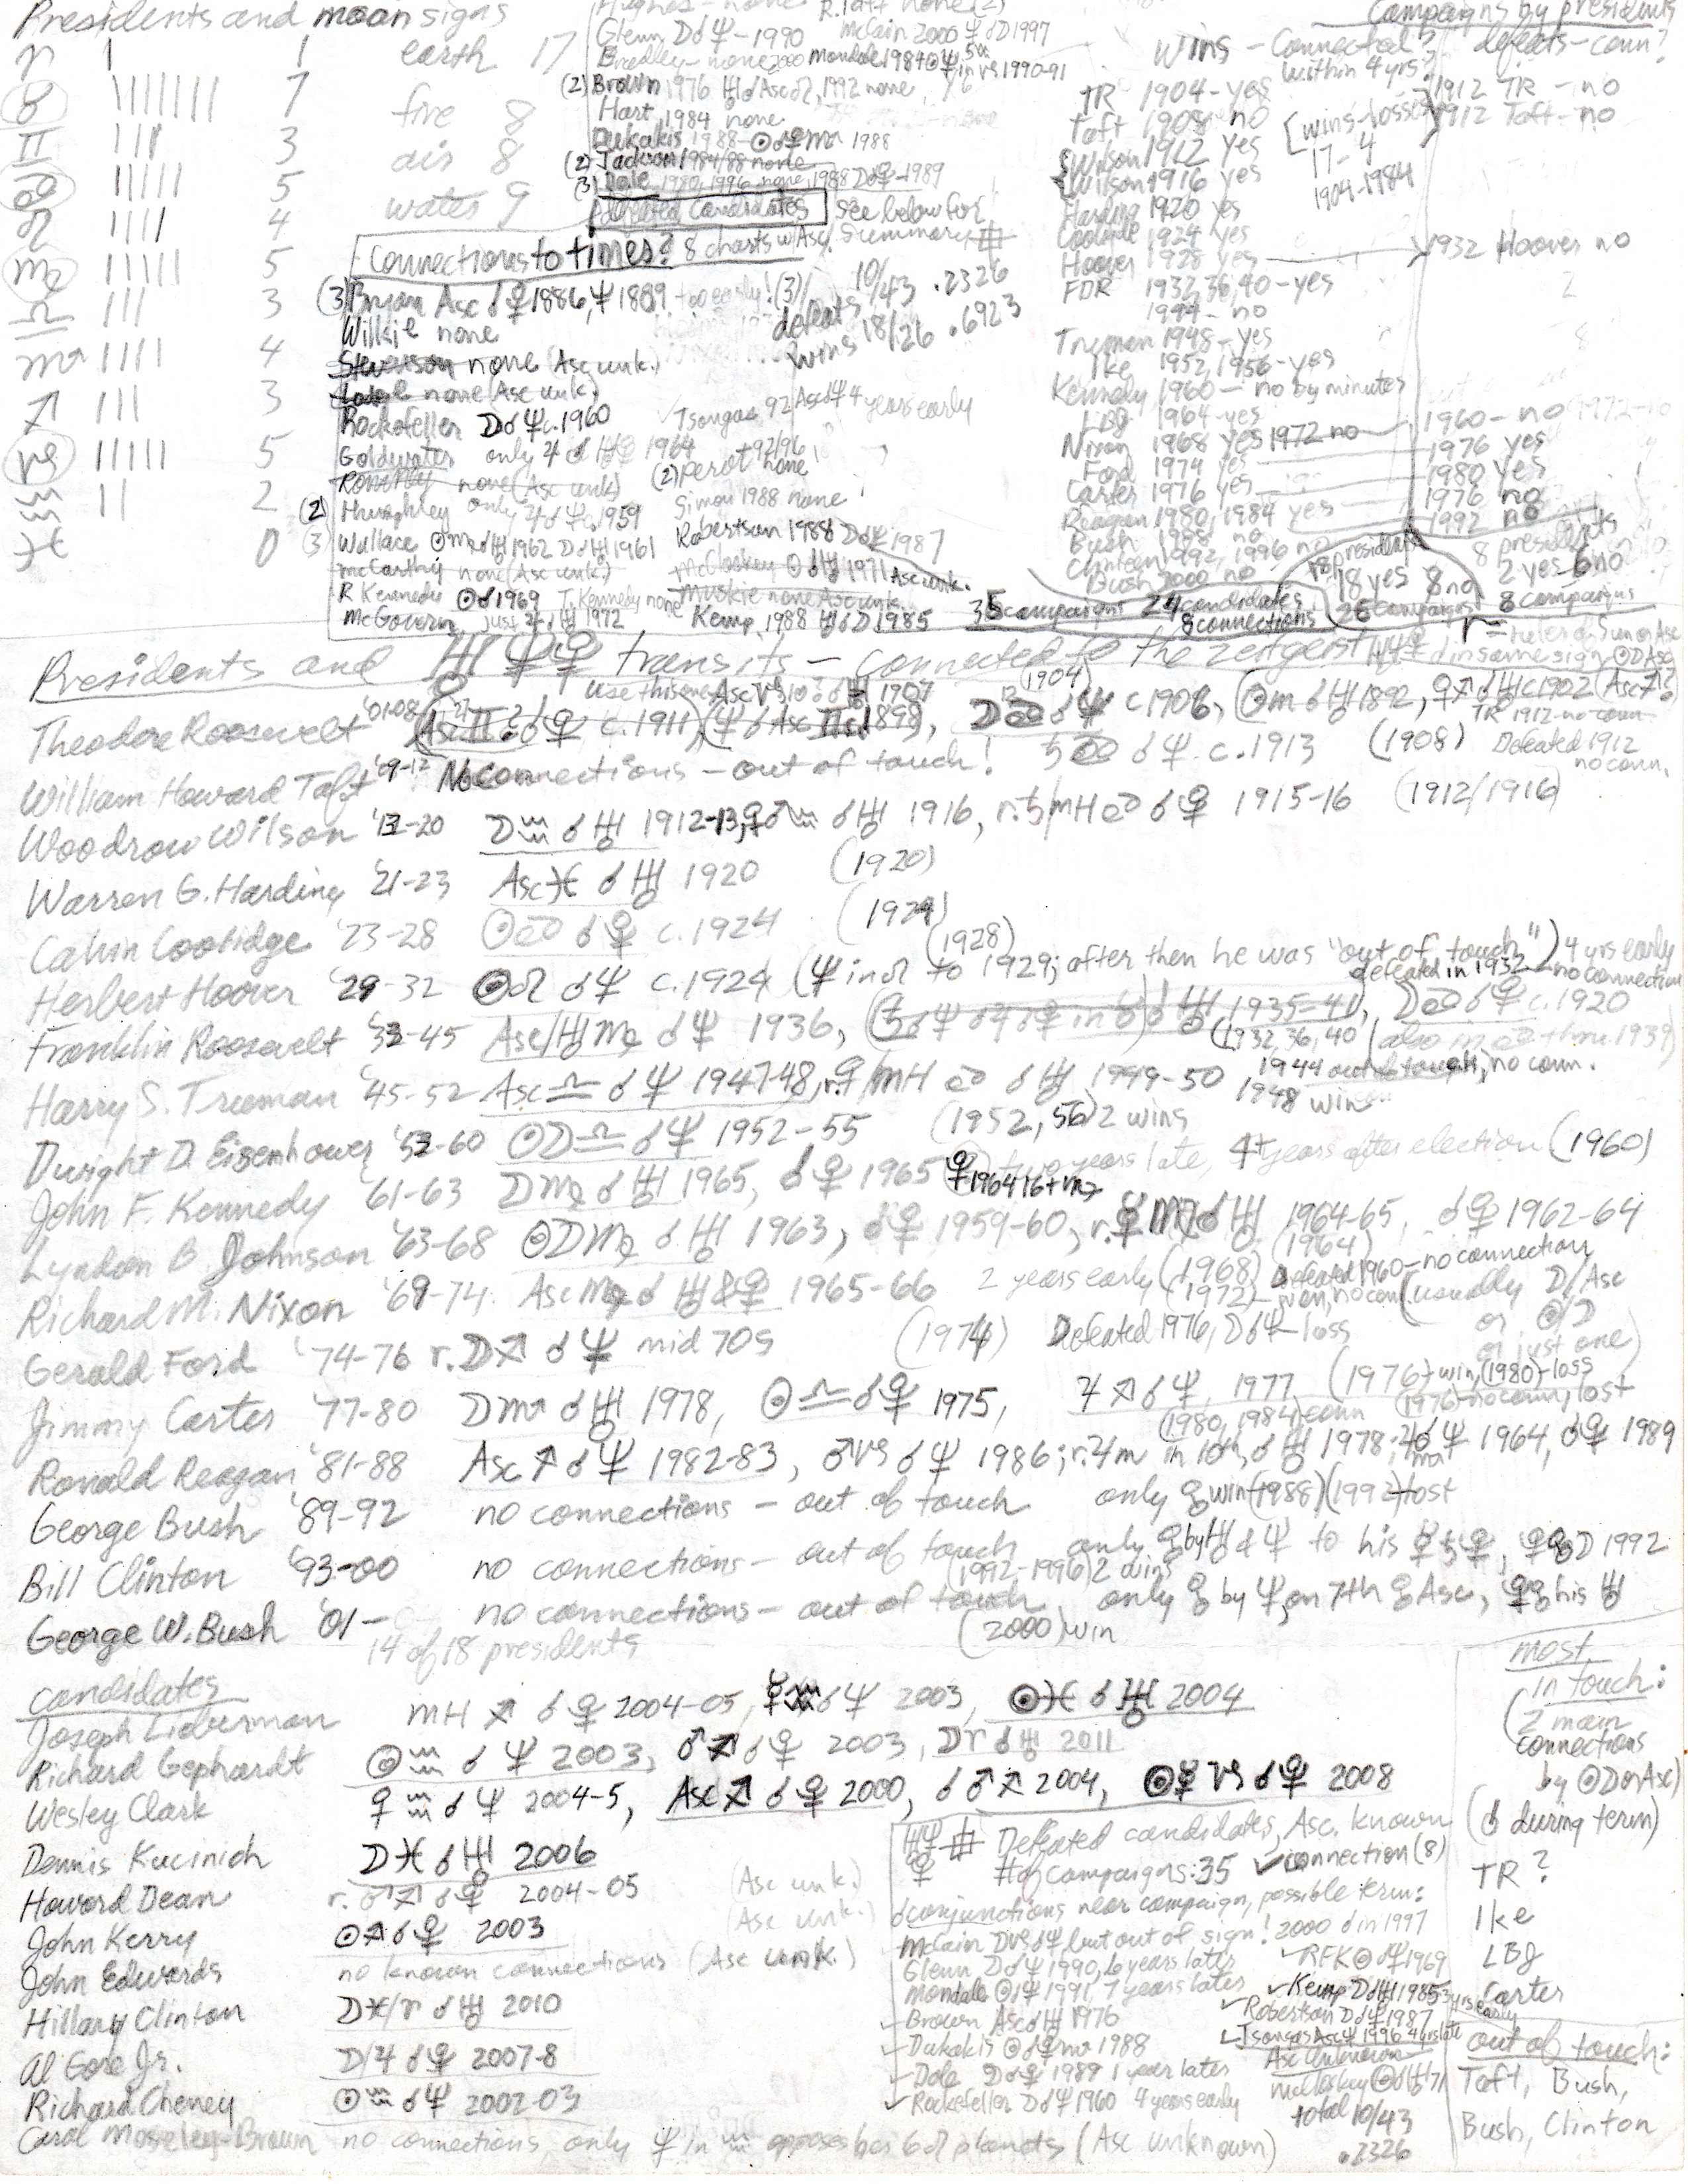 Presidents and moon signs
♈ 1 1
♉ ||||||| 7
♊ ||| 3
♋ ||||| 5
♌ |||| 4
♍ ||||| 5
♎ ||| 3
♏ |||| 4
♐ ||| 3
♑ ||||| 5
♒ || 2
♓ 0
earth 17
fire 8
air 8
water 9
Hughes - none R. Taft none (2)
Glenn ☽☌♆ - 1990 McCain 2000 ♆☌☽ 1997
Bradley - none 2000 Mondale 1984 ☉☌♆ in ♑ 1990-91
(2) Brown 1976 ♅☌Asc♏, 1992 none
Hart 1984 none
Dukakis 1988 - ☉☌♇♏ 1988
(2) Jackson 1984/88 none
(3) Dole 1980, 1996 none, 1988 ☽☌♇ - 1989
Defeated Candidates See below for summary #
Connections to times? 8 charts w/Asc.
(3) Bryan Asc ☌♇ 1886, ♆ 1889 too early! (3)
Willkie none
Stevenson none (Asc unk.)
Lodge none (Asc unk.)
Rockefeller ☽☌♆ c. 1960
Goldwater only ♃☌♅♇ 1964
Romney none (Asc unk)
(2) Humphrey only ♃☌♆ c. 1959
(3) Wallace ☉♍☌♅ 1962 ☽☌♅ 1961
McCarthy none (Asc unk.)
R Kennedy ☉☌ 1969 T. Kennedy none
McGovern just ♃☌♅ 1972
10/43 .2326
defeats
wins 18/26 .6923
Tsongas 92 Asc☌♆ 4 years early
(2) Perot none 92/96
Simon 1988 none
Robertson 1988 ☽☌♆ 1987
McCloskey ☉☌♅ 1971 Asc unk.
Muskie none Asc unk.
Kemp 1988 ♅☌☽ 1985
35 campaigns 24 candidates
8 connections
Campaigns by presidents
Wins - Connected? defeats - conn?
within 4 yrs?
TR 1904 - yes 1912 TR - no
Taft 1908 no 1912 Taft - no
Wilson 1912 yes
Wilson 1916 yes
[wins-losses
17-4
1904-1984
Harding 1920 yes
Coolidge 1924 yes
Hoover 1928 yes 1932 Hoover no
FDR 1932, 36, 40 - yes
1944 - no
Truman 1948 - yes
Ike 1952, 1956 - yes
Kennedy 1960 - no by minutes
LBJ 1964 - yes
Nixon 1968 yes 1972 no 1960 - no
Ford 1974 yes 1976 yes
Carter 1976 yes 1980 yes
Reagan 1980, 1984 yes 1976 no
Bush 1988 no 1992 no
Clinton 1992, 1996 no
Bush 2000 no
18 presidents
18 yes 8 no
26 campaigns
8 presidents
2 yes 6 no
8 campaigns
Presidents and ♅♆♇ transits - connected to the zeitgeist
Theodore Roosevelt '01-08 (Asc♊?☌♇ c. 1911) (♆☌Asc♊ c. 1898), ☽♋☌♆ c. 1906, ☉♏☌♅ 1892, ♀♐☌♅ c. 1902 (Asc♐?)
use this one Asc♑10°☌♅ 1907 (1904)
TR 1912 - no conn
William Howard Taft '09-12 No connections - out of touch! ♄♋☌♆ c. 1913 (1908) Defeated 1912 no conn.
Woodrow Wilson '13-20 ☽♒☌♅ 1912-13, ♀♂♒☌♅ 1916, r.♄/MH♋☌♇ 1915-16 (1912/1916)
Warren G. Harding '21-23 Asc♓☌♅ 1920 (1920)
Calvin Coolidge '23-28 ☉♋☌♇ c. 1924 (1924)
Herbert Hoover '29-32 ☉♌☌♆ c. 1924 (♆ in ♌ to 1929; after then he was "out of touch") 4 yrs early
(1928) defeated in 1932 - no connection
Franklin Roosevelt '33-45 Asc/♅♍☌♆ 1936, (♄☌♆☌♃☌♇ in ♉)☌♅ 1935-41, ☽♋☌♇ c. 1920
(1932, 36, 40) (also in ♋ thru 1939)
1944 out of touch, no conn.
Harry S. Truman '45-52 Asc♎☌♆ 1947-48, r.♀/MH♋☌♅ 1949-50 1948 win
Dwight D. Eisenhower '53-60 ☉☽♎☌♆ 1952-55 (1952, 56) 2 wins
John F. Kennedy '61-63 ☽♍☌♅ 1965, ☌♇ 1965 two years late, 4+ years after election (1960)
Lyndon B. Johnson '63-68 ☉☽♍☌♅ 1963, ☌♇ 1959-60, r.☿♍☌♅ 1964-65, ☌♇ 1962-64
(1964)
Richard M. Nixon '69-74 Asc♍☌♅&♇ 1965-66 2 years early (1968) Defeated 1960 - no connection
(1972) - win, no conn (usually ☽/Asc or ☉/☽ or just one)
Gerald Ford '74-76 r.☽♐☌♆ mid 70s (1974) Defeated 1976, ☽☌♆ - loss
Jimmy Carter '77-80 ☽♏☌♅ 1978, ☉♎☌♇ 1975, ♃♐☌♆, 1977 (1976) + win, (1980) - loss
(1980, 1984) conn (1976) - no conn, lost
Ronald Reagan '81-88 Asc♐☌♆ 1982-83, ♂♑☌♆ 1986; r.♃♏ in 10th, ☌♅ 1978; ♃☌♆ 1964, ☌♇ 1989
George Bush '89-92 no connections - out of touch only ☍ win (1988) (1992) lost
Bill Clinton '93-00 no connections - out of touch only ☍ by ♅&♆ to his ☿♄♀, ♇☍☽ 1992
(1992-1996) 2 wins
George W. Bush '01- no connections - out of touch, only ☍ by ♆, on 7th ☍ Asc, ♇☍ his ♅
(2000) win
14 of 18 presidents
candidates
Joseph Lieberman MH♐☌♇ 2004-05, ☿♒☌♆ 2003, ☉♓☌♅ 2004
Richard Gephardt ☉♒☌♆ 2003, ♂♐☌♇ 2003, ☽♈☌♅ 2011
Wesley Clark ♀♒☌♆ 2004-5, Asc♐☌♇ 2000, ☌♂♐ 2004, ☉☿♑☌♇ 2008
Dennis Kucinich ☽♓☌♅ 2006
Howard Dean r.♂♐☌♇ 2004-05 (Asc unk.)
John Kerry ☉♐☌♇ 2003 (Asc unk.)
John Edwards no known connections (Asc unk.)
Hillary Clinton ☽♓/♈☌♅ 2010
Al Gore Jr. ☽/♃☌♇ 2007-8
Richard Cheney ☉♒☌♆ 2002-03
Carol Moseley-Brown no connections, only ♆ in ♒ opposes her 6 ♌ planets (Asc unknown)
♅♆♇ # Defeated candidates, Asc. known
# of campaigns: 35 ✓connection (8)
☌conjunctions near campaign, possible term:
McCain ☽♑☌♆ but out of sign! 2000 ☌ in 1997
Glenn ☽☌♆ 1990, 6 years later ✓RFK ☉☌♆ 1969
Mondale ☉☌♆ 1991, 7 years later ✓Kemp ☽☌♅ 1985 3 yrs early
✓Brown Asc☌♅ 1976 ✓Robertson ☽☌♆ 1987
✓Dukakis ☉☌♇♏ 1988 ✓Tsongas Asc♆ 1996 4 yrs late
✓Dole ☽☌♇ 1989 1 year later Asc Unknown
✓Rockefeller ☽☌♆ 1960 4 years early McCloskey ☉☌♅ 71
total 10/43
.2326
most
in touch:
(2 main
connections
by ☉☽ or Asc)
(☌ during term)
TR?
Ike
LBJ
Carter
out of touch:
Taft, Bush,
Bush, Clinton